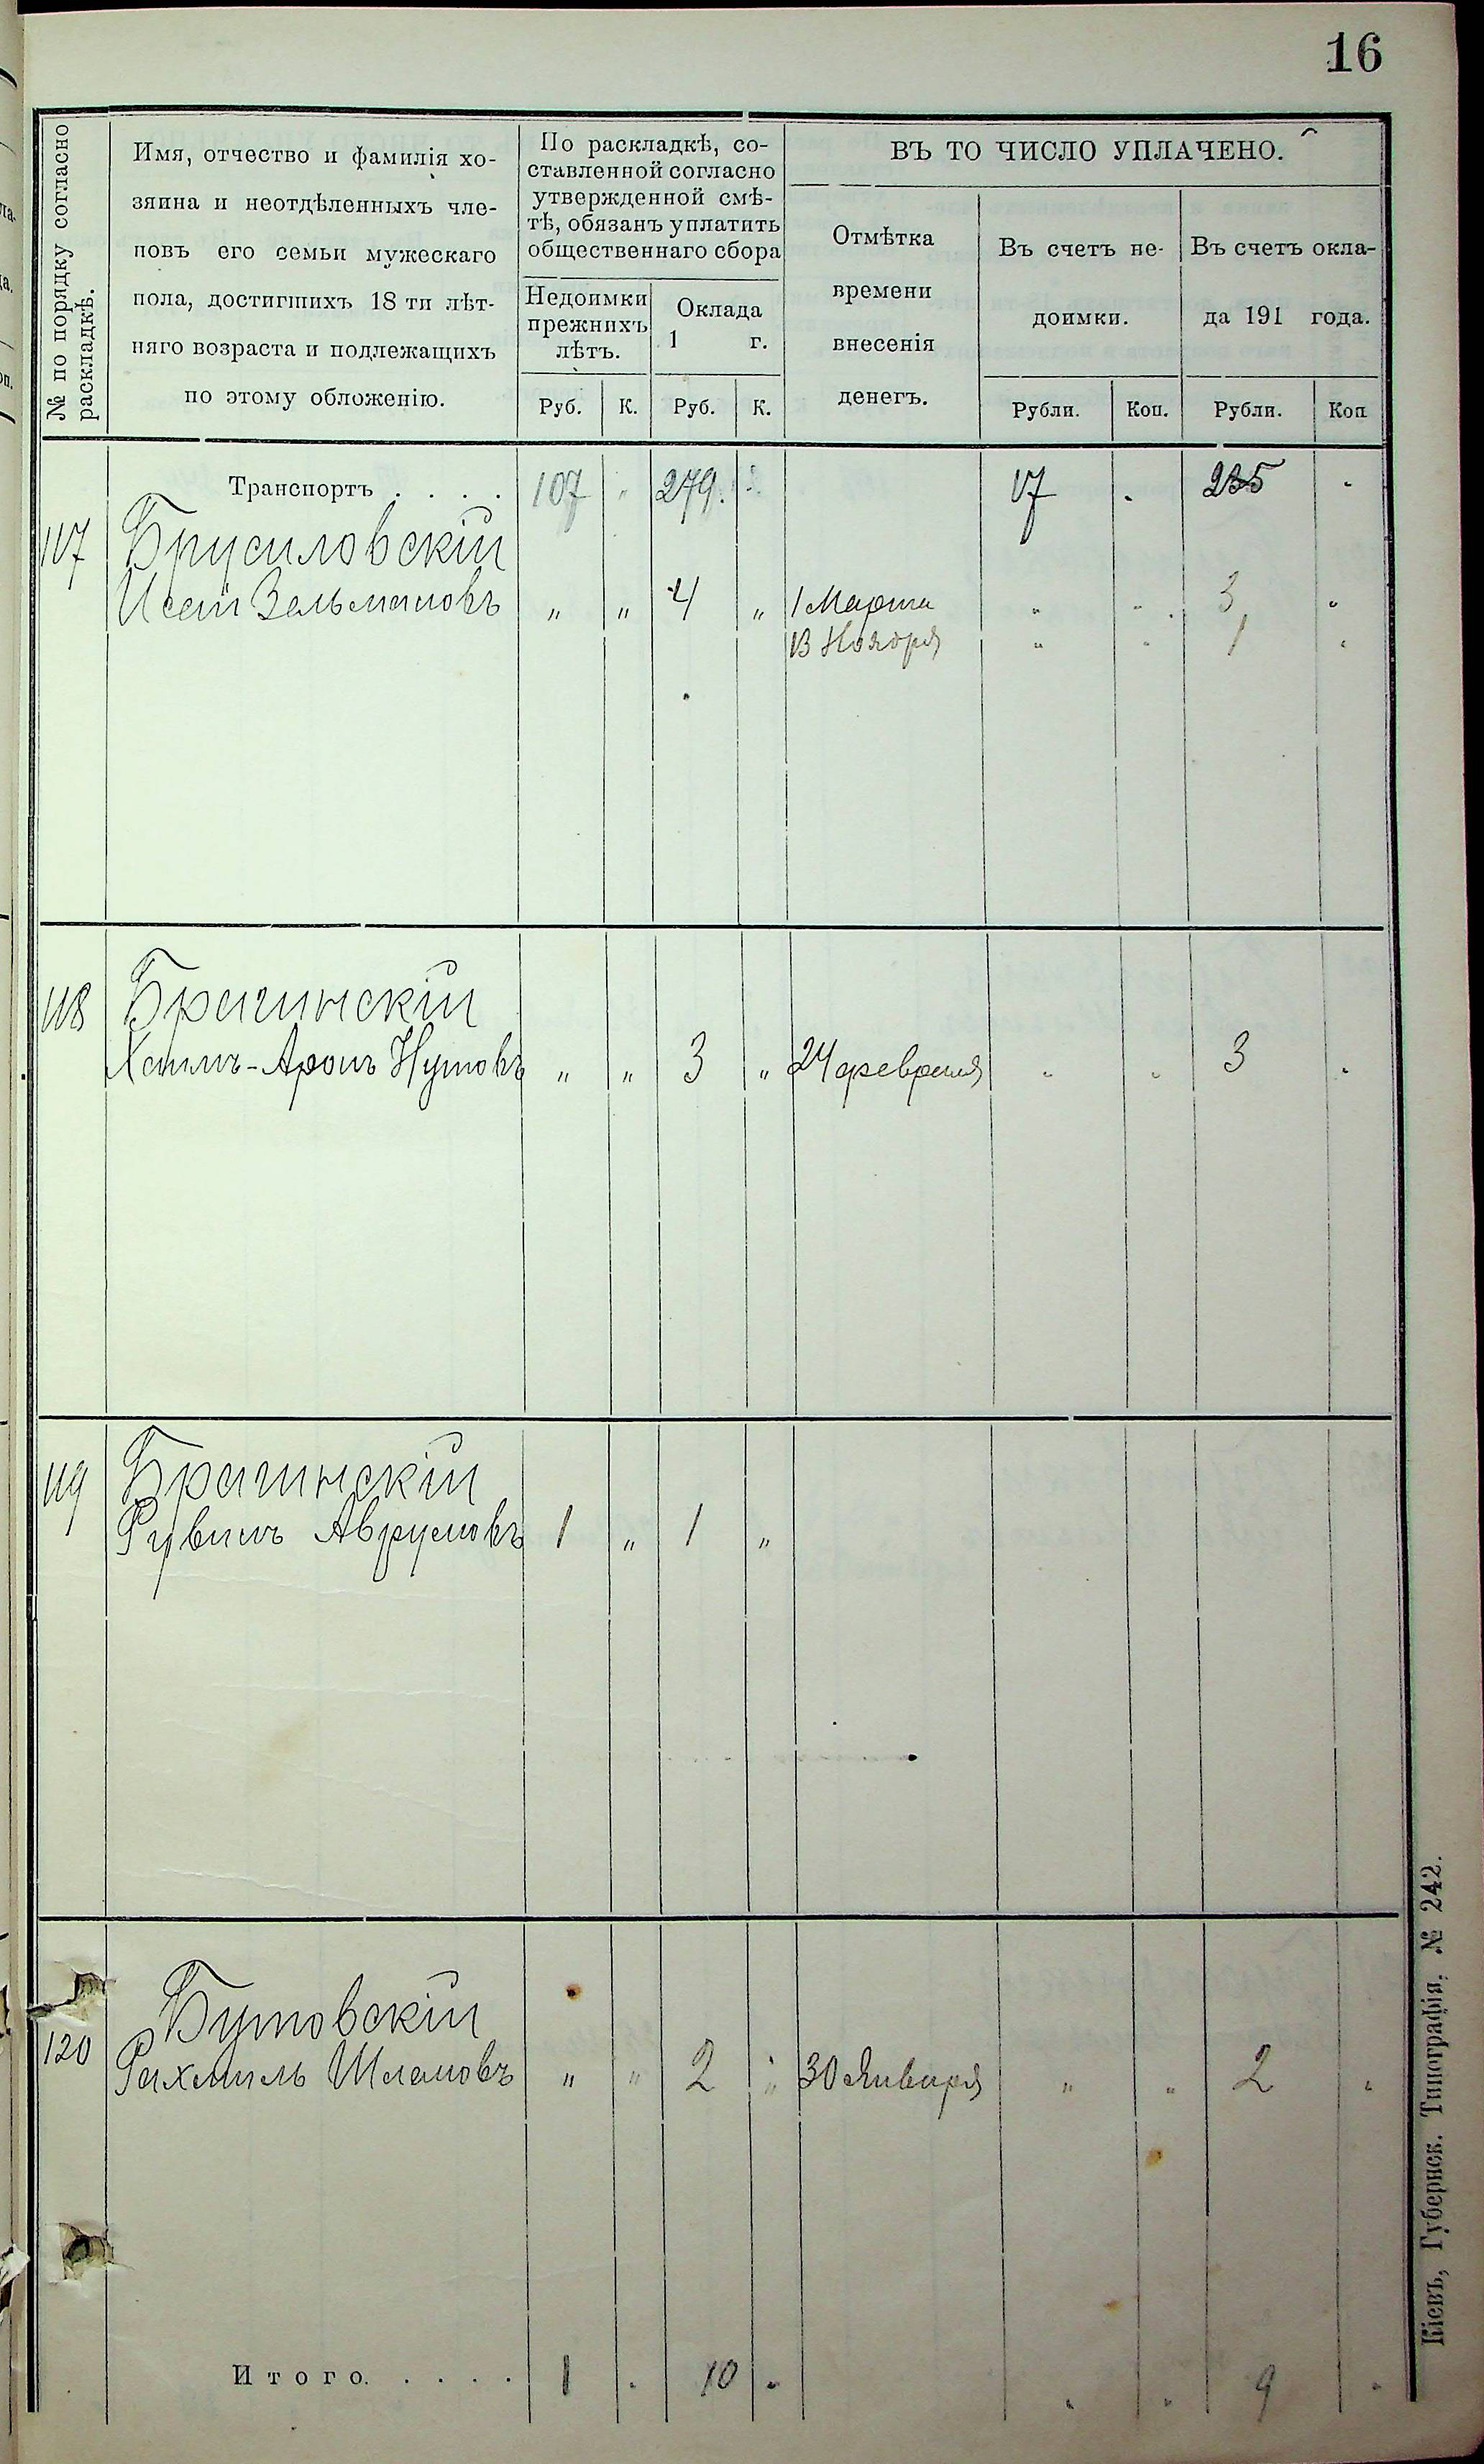 16
№ по порядку согласно раскладкѣ.
Имя, отчество и фамилія хо-
зяина и неотдѣленныхъ чле-
новъ его семьи мужескаго
пола, достигшихъ 18 ти лѣт-
няго возраста и подлежащихъ
по этому обложенію.
По раскладкѣ, со-
ставленной согласно
утвержденной смѣ-
тѣ, обязанъ уплатить
общественнаго сбора
Недоимки
прежнихъ
лѣтъ.
Оклада
1 г.
Руб. К. Руб. К.
ВЪ ТО ЧИСЛО УПЛАЧЕНО.
Отмѣтка
времени
внесенія
денегъ.
Въ счетъ не-
доимки.
Въ счетъ окла-
да 191 года.
Рубли. Коп. Рубли. Коп
Транспортъ . . . . 107 " 279. " 17 " 235 "
117 Брусиловскій
Исай Зельмановъ " " 4 " 1 Марта " " 3 "
13 Ноября " " 1 "
118 Брагинскій
Хаимъ-Аронъ Нутовъ " " 3 " 24 февраля " " 3 "
119 Брагинскій
Рувинъ Аврумовъ 1 " 1 "
120 Бутовскій
Рахмиль Шлемовъ " " 2 " 30 Января " " 2 "
Итого. . . . . 1 " 10 " " " 9 "
Кіевъ, Губернск. Типографія. № 242.